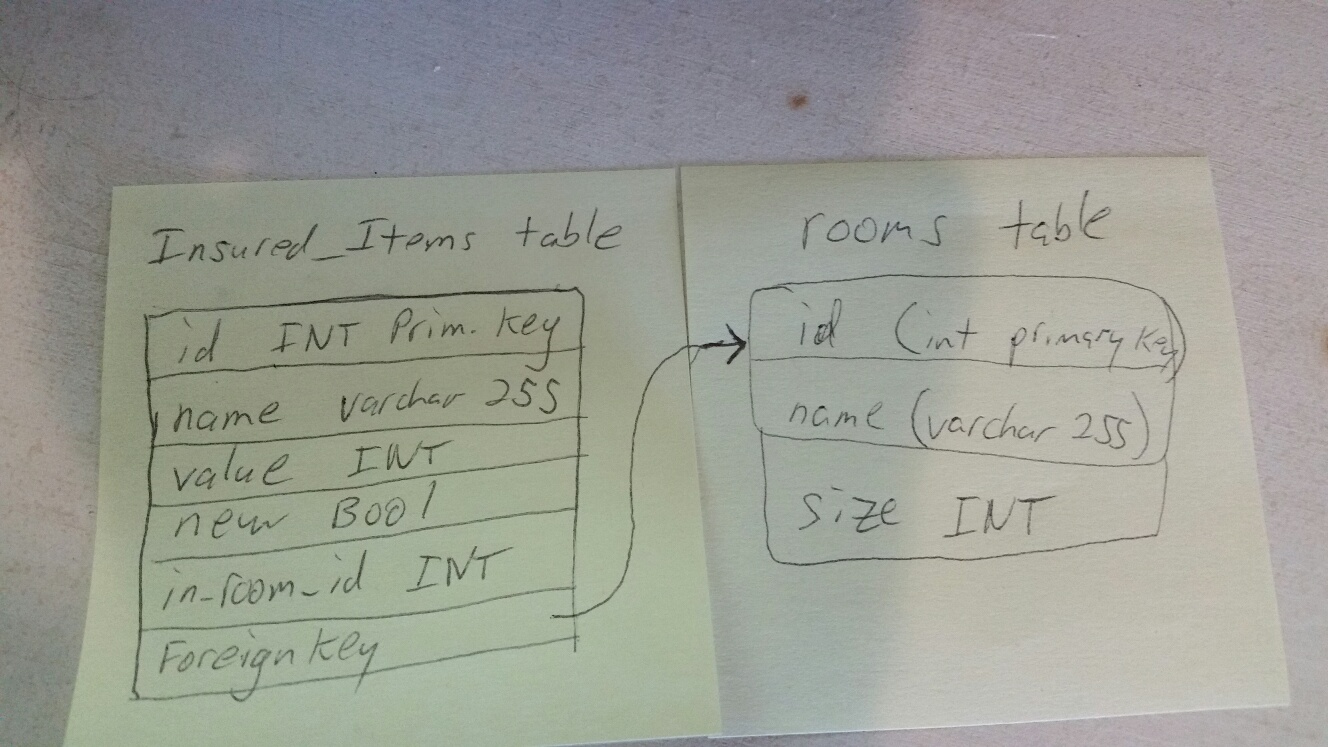 Insured_Items table
id INT Prim. Key
name varchar 255
value INT
new Bool
in_room_id INT
Foreign key
rooms table
id (int primary key)
name (varchar 255)
size INT